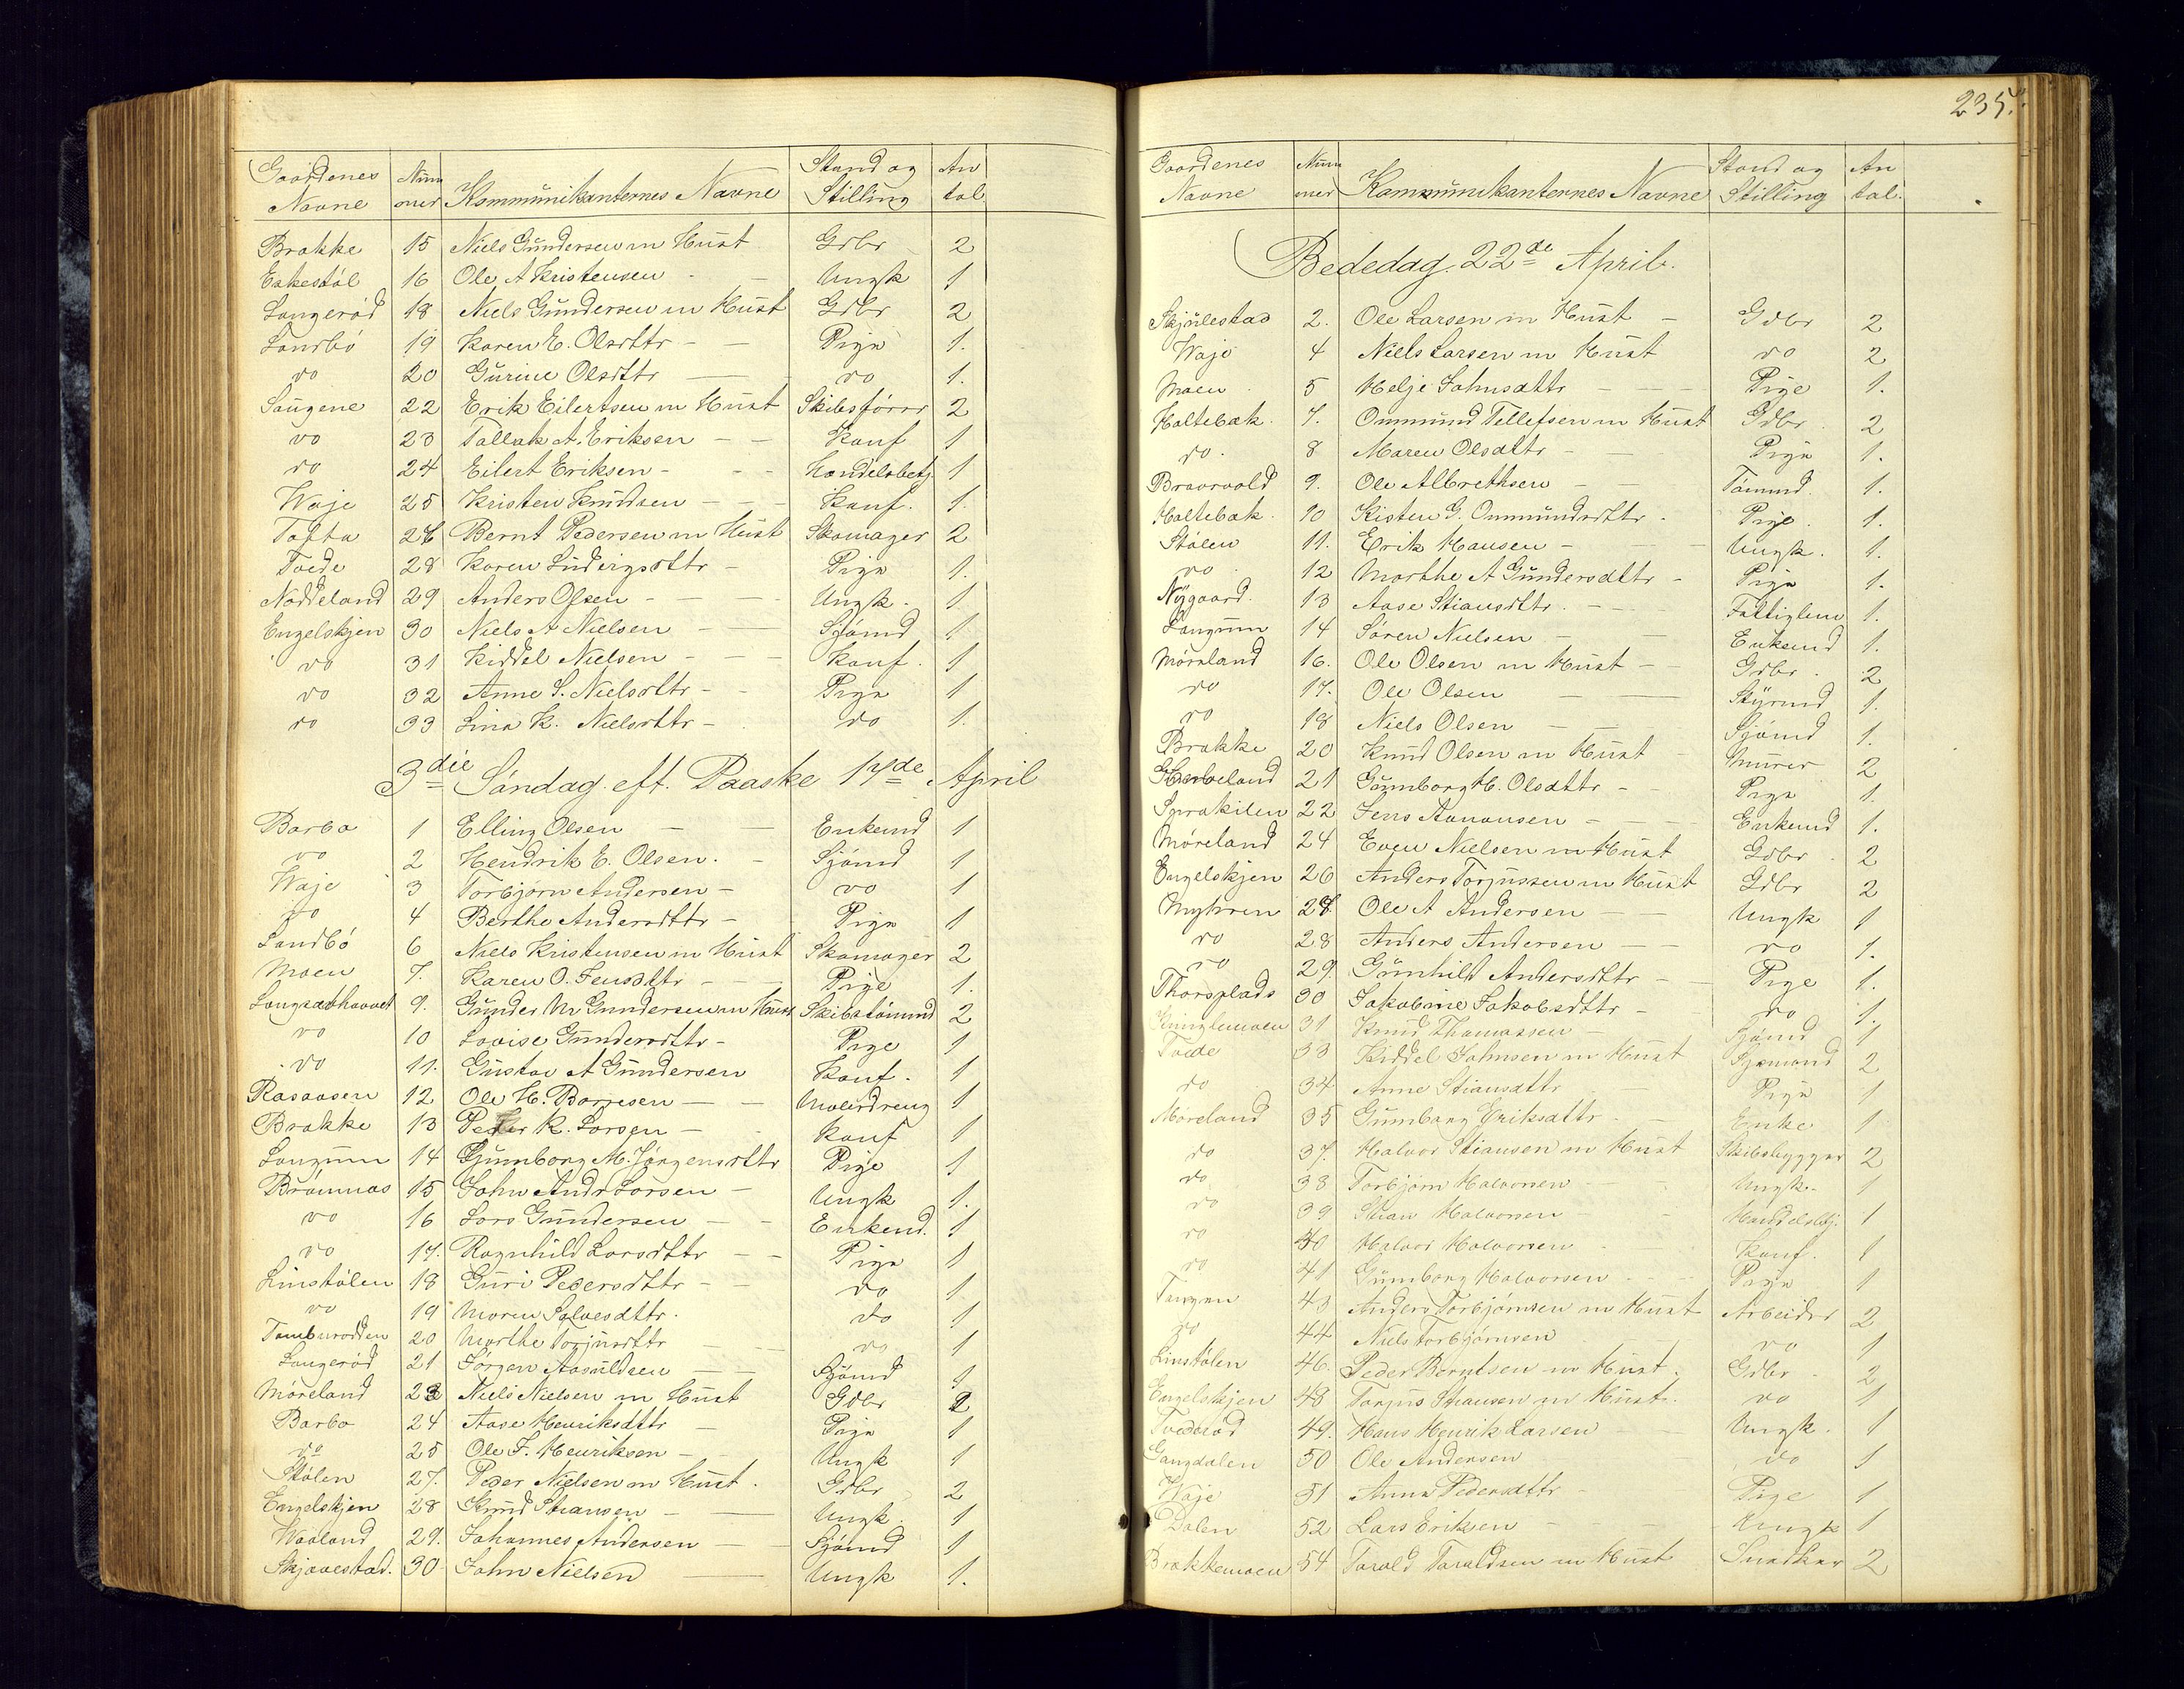 Gaardenes Navne | Num mer | Kommunikanternes Navne | Stand og Stilling | An tal
Brakke 15 Niels Gundersen m Hust Gdbr 2
Eakestøl 16 Ole A Kristensen - Ungk 1
Langerød 18 Niels Gundersen m Hust Gdbr 2
Sandbö 19 Karen E. Olsdttr - Pige 1.
do 20 Gurine Olsdttr - do 1.
Saugene 22 Erik Eilertsen m Hust Skibsförer 2
do 23 Tallak A. Eriksen - Konf 1
do 24 Eilert Eriksen - Handelsbetj. 1
Waje 25 Kristen Knudsen - Konf. 1.
Tofta 26 Bernt Pedersen m Hust Skomager 2
Tvede 28 Karen Ludvigsdttr - Pige 1.
Noddeland 29 Anders Olsen - Ungk. 1
Engelskjen 30 Niels A Nielsen - Sjömd 1.
do 31 Kiddel Nielsen - Konf. 1
do 32 Anne S. Nielsdttr - Pige 1
do 33 Lina K. Nielsdttr - do 1.
3die Söndag eft. Paaske 17de April
Barbo 1 Elling Olsen - Enkemd 1
do 2 Hendrik E. Olsen. - Sjömd 1
Waje 3 Torbjörn Andersen - do 1
do 4 Berthe Andersdttr - Pige 1
Sandbö 6 Niels Kristensen m Hust Skomager 2
Moen 7. Karen O. Jensdttr - Pige 1.
9. Gunder M Gundersen m Hust Skibstömmd 2
do 10 Lovise Gundersdttr - Pige 1
do 11. Gustav A Gundersen Konf. 1
Rasaasen 12 Ole H. Borresen - Malerdreng 1
Brakke 13 Peder K. Larsen - Konf 1
Langum 14 Gumborg M. Jörgensdttr Pige 1
Brömnas 15 John Andr Larsen - Ungk 1.
do 16 Lars Gundersen - Enkemd. 1
do 17. Ragnhild Larsdttr - Pige 1
Linstölen 18 Guri Pedersdttr - do 1
do 19 Maren Salvesdttr. do 1
20 Marthe Torjusdttr do 1
Langeröd 21 Jörgen Aasuldsen - Sjömd 1
Möreland 23 Niels Nielsen m Hust Gdbr 2
Barbo 24 Aase Henriksdttr - Pige 1
do 25 Ole F. Henriksen - Ungk 1
Stölen 27. Peder Nielsen m Hust. Gdbr 2
Engelskjen 28 Knud Stiansen - Ungk. 1
Waaland 29. Johannes Andersen - Sjömd 1
Skjævestad. 30 John Nielsen - Ungk 1.
235.
Gaardenes Navne | Num mer | Kommunikanternes Navne | Stand og Stilling | An tal.
Bededag. 22de April.
Skjulestad 2. Ole Larsen m Hust - Gdbr 2
Waje 4 Niels Larsen m Hust do 2
Moen 5 Helje Johnsdttr - Pige 1.
Holtebæk. 7. Ommund Tellefsen m Hust Gdbr. 2
do. 8 Maren Olsdttr - Pige 1.
Bravrvold 9. Ole Albrethsen - Tömmd. 1.
Holtebæk. 10 Kisten G. Ommundsdttr. Pige. 1.
Stölen 11. Erik Hansen - Ungk. 1.
do. 12 Marthe A Gundersdttr - Pige 1.
Nygaard. 13 Aase Stiansdttr. - Fattiglem 1.
Langum 14 Sören Nielsen - Enkemd 1.
Möreland 16. Ole Olsen m Hust - Gdbr. 2
do 17. Ole Olsen - Styrmd 1.
do 18 Niels Olsen - Sjömd 1.
Brakke 20 Knud Olsen m Hust - Murer 2
21 Gumborg H. Olsdttr - Pige 1.
22 Jens Aanonsen - Enkemd 1.
Möreland 24 Even Nielsen m Hust Gdbr. 2
Engelskjen 26 Anders Torjussen m Hust Gdbr 2
Myhren 27. Ole A Andersen - Ungk 1
do 28 Anders Andersen - do 1.
do 29. Gunhild Andersdttr - Pige 1.
Thorsplads 30 Jakobine Jakobsdttr - do 1.
31 Knud Thomassen - Sjömd 1
Tvede 33 Kiddel Johnsen m Hust Sjømand 2
do 34 Anne Stiansdttr Pige 1
Möreland 35 Gumborg Eriksdttr. - Enke 1
do 37. Halvor Stiansen m Hust Skibsbygger 2
do 38 Torbjörn Halvorsen - Ungk. 1
do 39 Stian Halvorsen - Handelsbj. 1
do 40 Halvor Halvorsen Konf. 1
do 41 Gumborg Halvorsen - Pige 1
Tangen 43 Anders Torbjörnsen m Hust Arbeider 2
do 44 Niels Torbjörnsen do 1
Linstölen 46. Peder Berntsen m Hust. Gdbr. 2
Engelskjen 48 Torjus Stiansen m Hust. do 1
Tvederöd 49. Hans Henrik Larsen - Ungk. 1
Langdalen 50 Ole Andersen do 1
Waje 51 Anna Pedersdttr - Pige 1
Dalen 52 Lars Eriksen - Ungk 1
Brakkemoen 54 Tarald Taraldsen m Hust Snedker 2